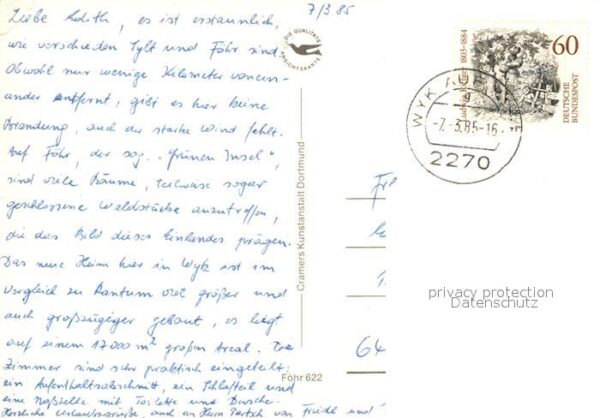 7/3 85
Liebe Edith, es ist erstaunlich,
wie verschieden Sylt und Föhr sind.
Obwohl nur wenige Kilometer vonein-
ander entfernt, gibt es hier keine
Brandung, auch der starke Wind fehlt.
Auf Föhr, der sog. "grünen Insel",
sind viele Bäume, teilweise sogar
geschlossene Waldstücke anzutreffen,
die das Bild dieses Eilandes prägen.
Das neue Heim hier in Wyk ist im
Vergleich zu Rantum viel größer und
auch großzügiger gebaut, es liegt
auf einem 17000 m² großen Areal. Die
Zimmer sind sehr praktisch eingeteilt:
ein Aufenthaltsabschnitt, ein Schlafteil und
eine Naßzelle mit Toilette und Dusche.
Herzliche Urlaubsgrüße, auch an Herrn von Friedl und
DIE QUALITÄTS
ANSICHTSKARTE
Cramers Kunstanstalt Dortmund
Föhr 622
Ludwig Richter 1803-1884
60
DEUTSCHE
BUNDESPOST
WYK
-7.-3.85-16
2270
64
privacy protection
Datenschutz